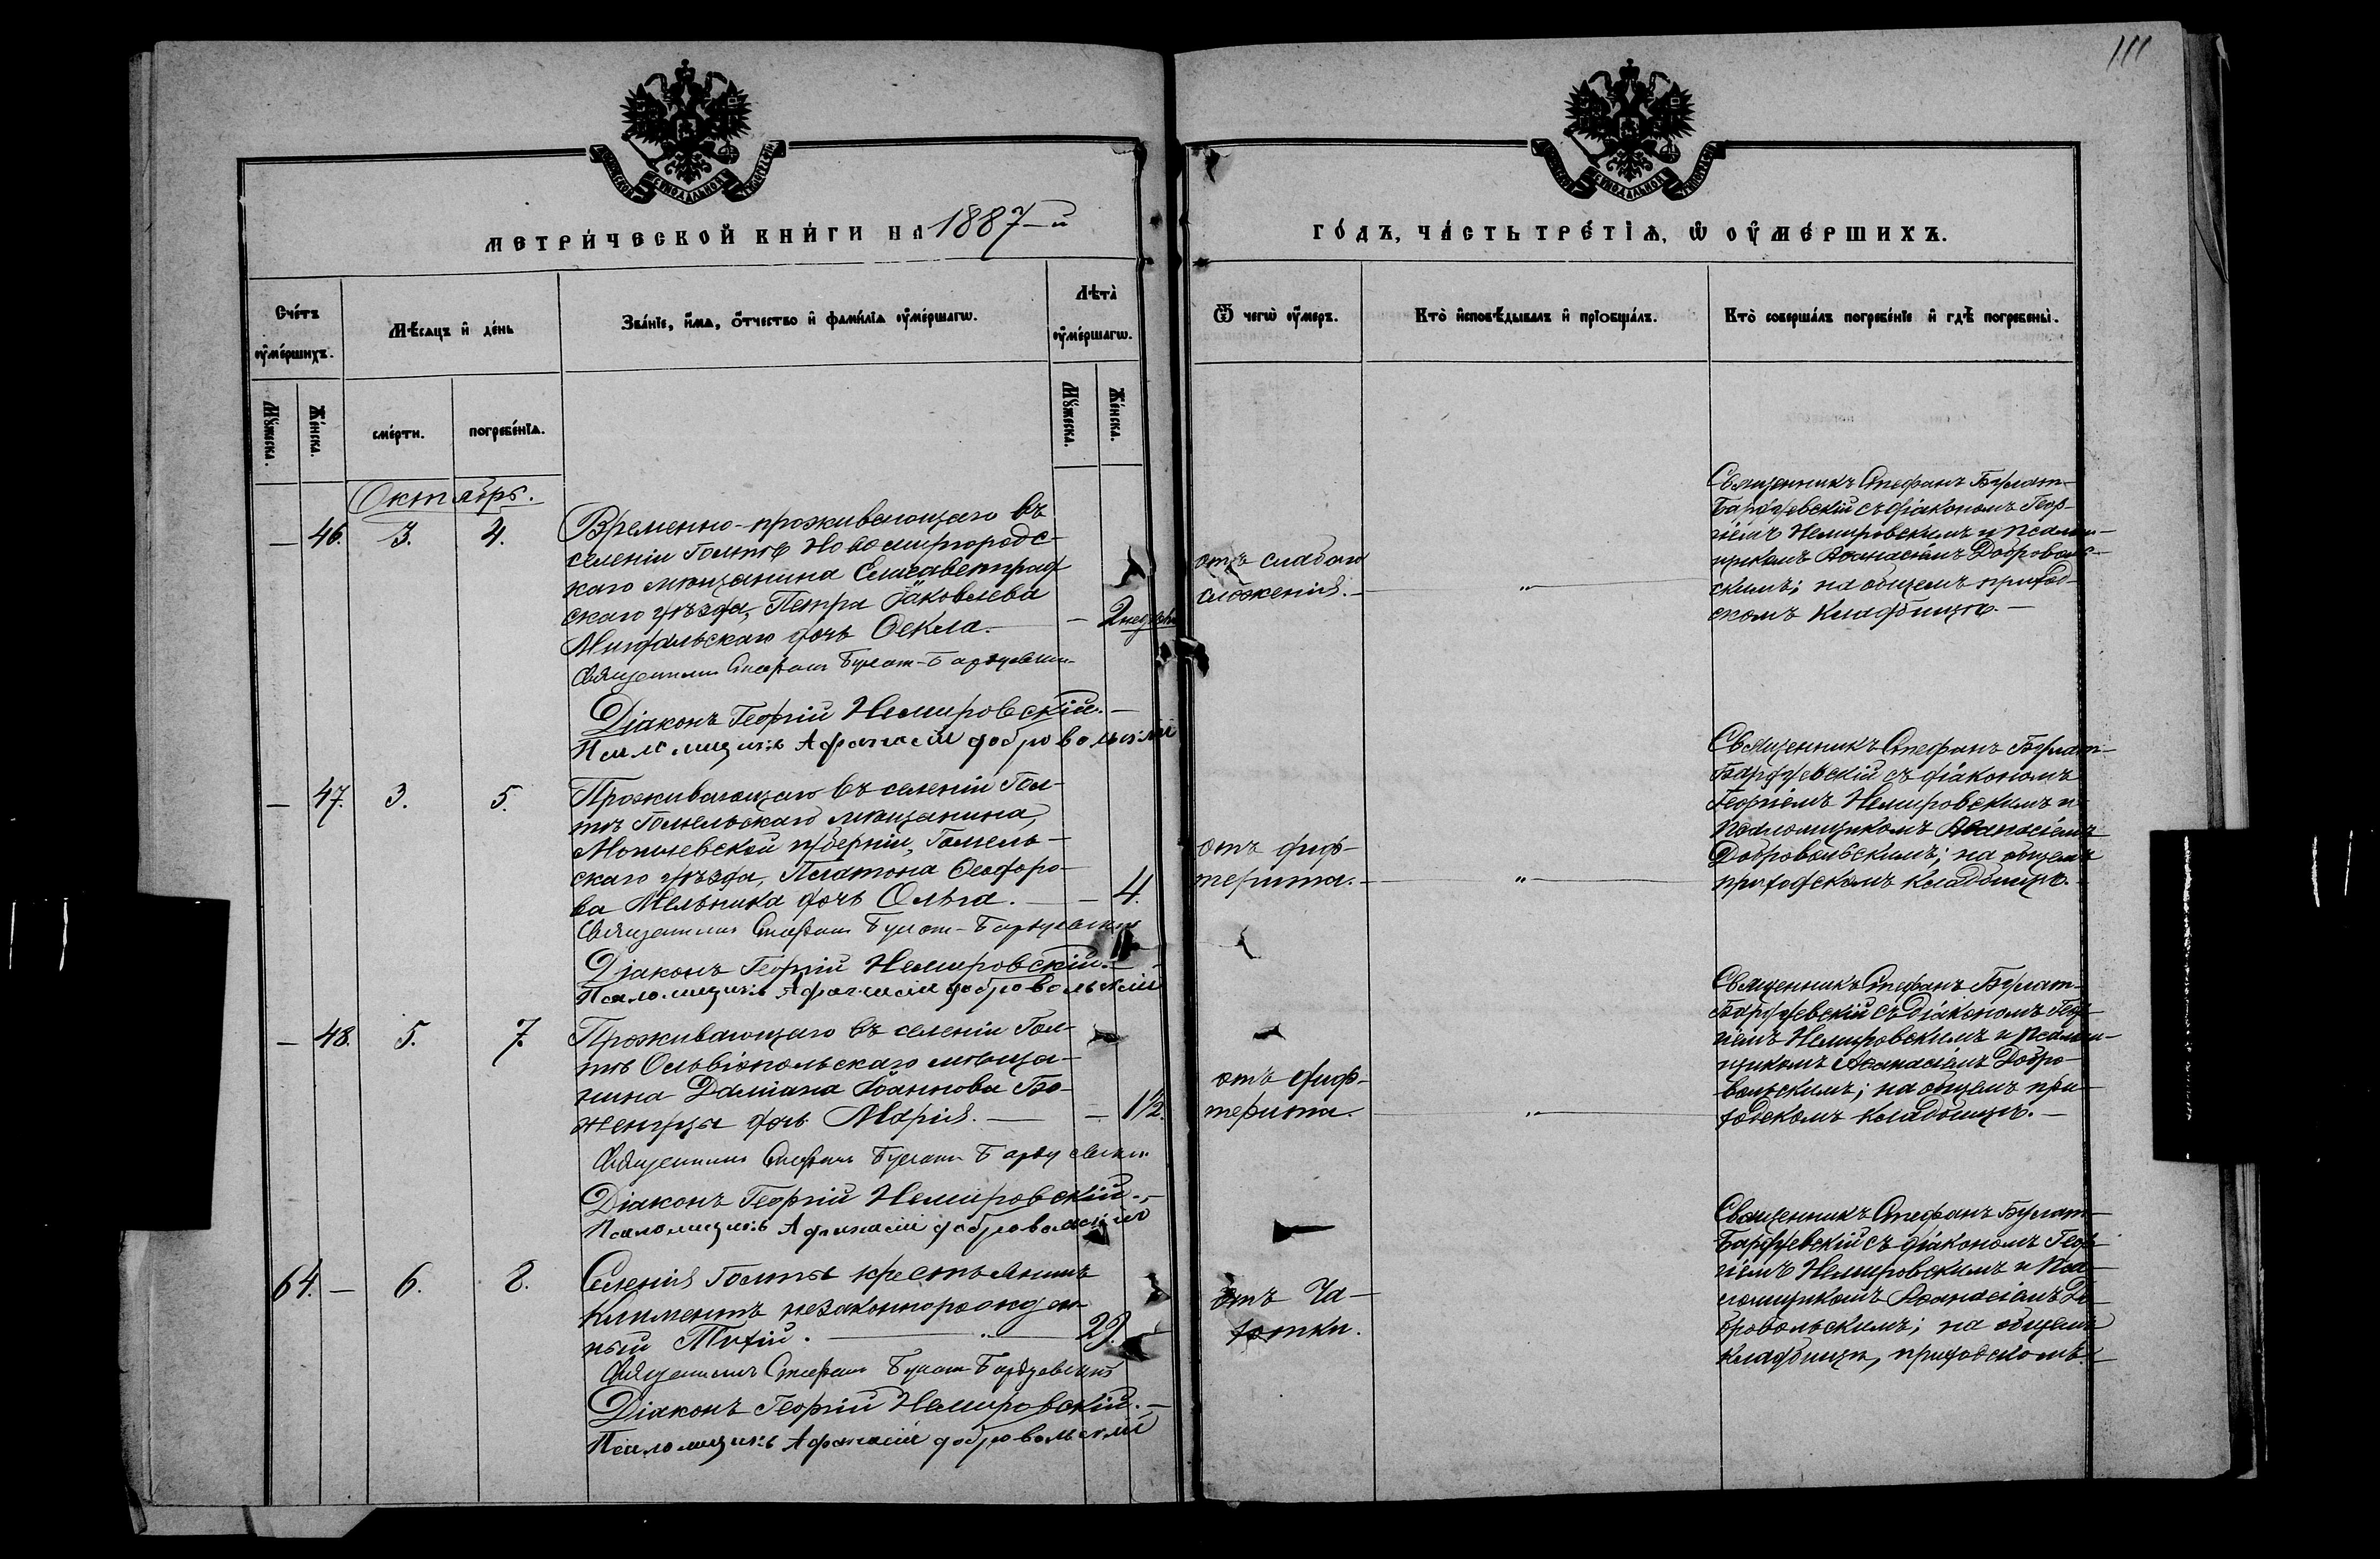 111
МОСКОВСКОЙ СѴНОДАЛЬНОЙ ТИПОГРАФІИ
МОСКОВСКОЙ СѴНОДАЛЬНОЙ ТИПОГРАФІИ
МЕТРИ́ЧЕСКОЙ КНИ́ГИ НА 1887-й
ГО́ДЪ, ЧА́СТЬ ТРЕ́ТІѦ, Ѡ ОУ҆МЕ́РШИХЪ.
Сче́тъ оу҆ме́ршихъ.
Мѣ́сяцъ и҆ де́нь
Зва́нїе, и҆́мѧ, ѻ҆́тчество и҆ фамѝлїѧ оу҆ме́ршагѡ.
Лѣ́та оу҆ме́ршагѡ.
Ѿ чегѡ̀ оу҆́меръ.
Кто̀ и҆сповѣ́дывалъ и҆ прїобща́лъ.
Кто̀ соверша́лъ погребе́нїе и҆ гдѣ̀ погребены̀.
Мꙋ́жеска.
Же́нска.
сме́рти.
погребе́нїѧ.
Мꙋ́жеска.
Же́нска.
Октябрь.
— 46. 3. 4.
Временно-проживающаго въ
селеніи Голтѣ Новомиргородс-
каго мѣщанина Елисаветград
скаго уѣзда, Петра Іаковлева
Мигальскаго дочь Ѳекла. — 2 недѣли
Священникъ Стефанъ Булат-Бардуевскій
Діаконъ Георгій Немировскій.—
Псаломщикъ Афанасій Добровольскій
отъ слабаго
сложенія. — „ —
Священникъ Стефанъ Булат-
Бардуевскій съ діакономъ Геор-
гіемъ Немировскимъ и псалом-
щикомъ Аѳанасіемъ Доброволь-
скимъ; на общемъ приход-
скомъ кладбищѣ.—
— 47. 3. 5.
Проживающаго въ селеніи Гол-
тѣ Гомельскаго мѣщанина,
Могилевской губерніи, Гомель-
скаго уѣзда, Платона Ѳеодоро-
ва Мельника дочь Ольга. — — 4.
Священникъ Стефанъ Булат-Бардуевскій
Діаконъ Георгій Немировскій.—
Псаломщикъ Афанасій Добровольскій
отъ диф-
терита. — „ —
Священникъ Стефанъ Булат-
Бардуевскій съ діакономъ
Георгіемъ Немировскимъ и
псаломщикомъ Аѳанасіемъ
Добровольскимъ; на общемъ
приходскомъ кладбищѣ.—
— 48. 5. 7.
Проживающаго въ селеніи Гол-
тѣ Ольвіопольскаго мѣща-
нина Даміана Іоаннова Бо-
женцы дочь Марія. — — 1/2.
Священникъ Стефанъ Булат-Бардуевскій
Діаконъ Георгій Немировскій.—
Псаломщикъ Афанасій Добровольскій
отъ диф-
терита. — „ —
Священникъ Стефанъ Булат-
Бардуевскій съ Діакономъ Геор-
гіемъ Немировскимъ и псалом-
щикомъ Аѳанасіемъ Добро-
вольскимъ; на общемъ при-
ходскомъ кладбищѣ.—
64. — 6. 8.
Селенія Голты крестьянинъ
Климентъ незаконнорожден-
ный Тихій. — „ — 29. —
Священникъ Стефанъ Булат-Бардуевскій
Діаконъ Георгій Немировскій.—
Псаломщикъ Афанасій Добровольскій
отъ Ча-
хотки.
Священникъ Стефанъ Булат-
Бардуевскій съ діакономъ Геор-
гіемъ Немировскимъ и Пса-
ломщикомъ Аѳанасіемъ До-
бровольскимъ; на общемъ
кладбищѣ, приходскомъ.—